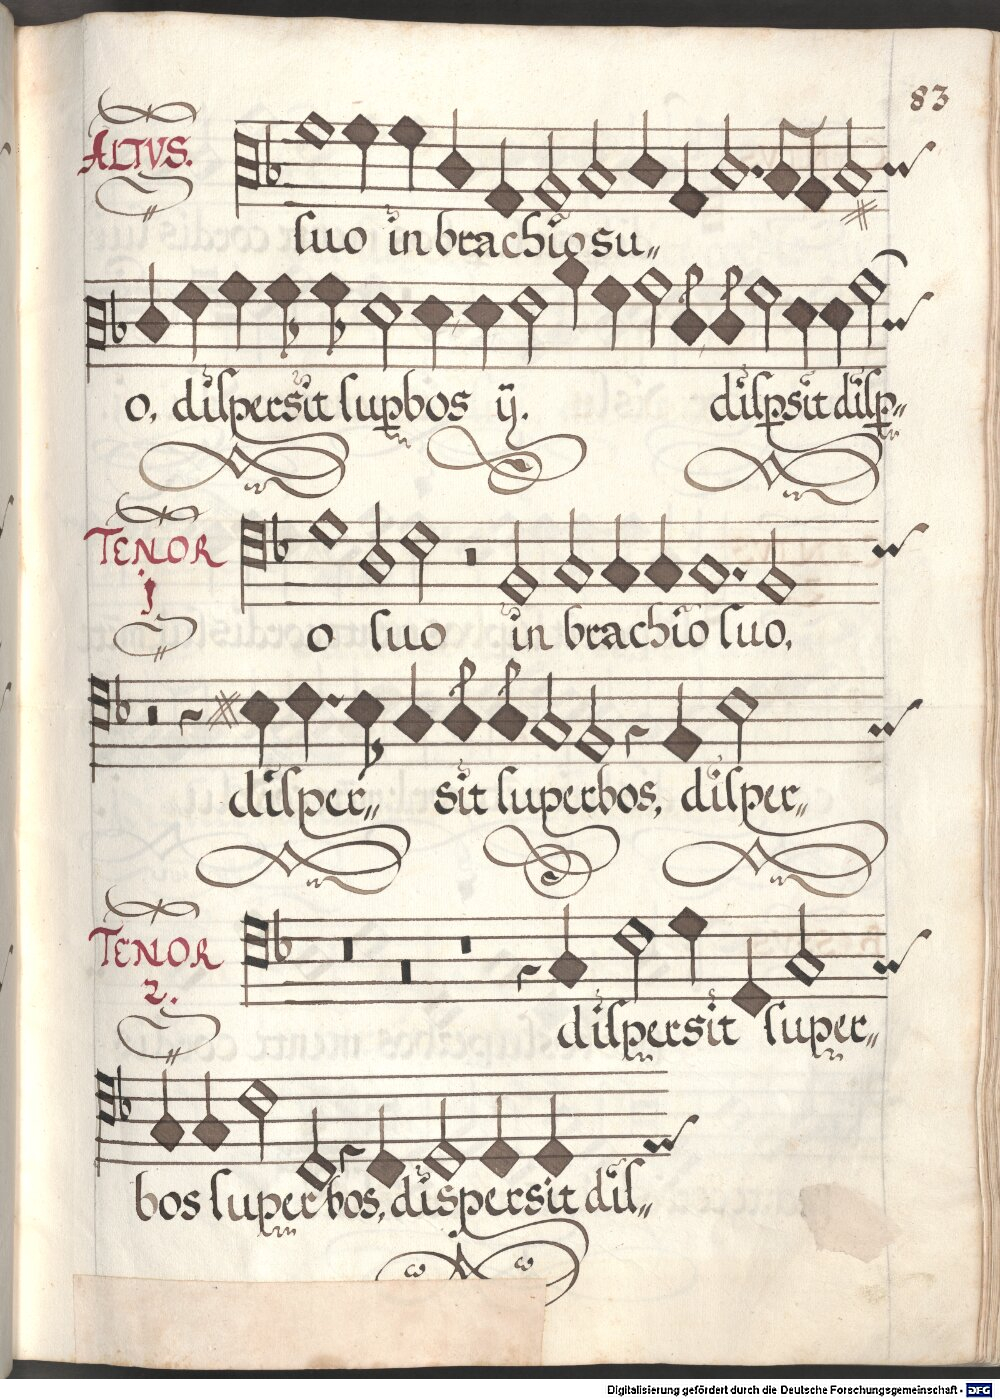 83
ALTVS.
suo in brachio su„
o, dispersit supbos ij. dispsit disp„
TENOR
j
o suo in brachio suo,
disper„ sit superbos, disper„
TENOR
2.
dispersit super„
bos superbos, dispersit dis„
Digitalisierung gefördert durch die Deutsche Forschungsgemeinschaft - DFG